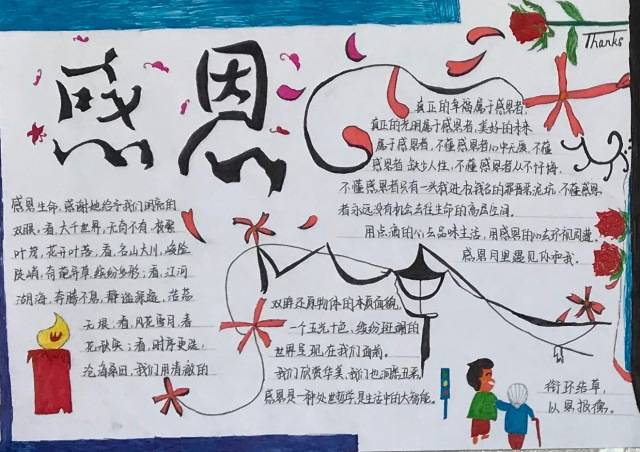 感恩
Thanks
真正的幸福属于感恩者,
真正的光明属于感恩者,美好的未来
属于感恩者,不懂感恩者心中无爱,不懂
感恩者缺少人性,不懂感恩者从不忏悔,
不懂感恩者只有一头栽进自我的罪孽泥坑,不懂感恩
者永远没有机会去往生命的高层空间。
用点滴的心去品味生活,用感恩的心去环视周遭,
感恩月里遇见你和我。
感恩生命,感谢她给予我们明亮的
双眼,看,大千世界,无奇不有,枝繁
叶茂,花开叶落,看,名山大川,
奇葩异草,缤纷多彩,看,江河
湖海,奔腾不息,静谧深邃,浩荡
无垠,看,风花雪月,春
花秋实,看,时序更迭,
沧海桑田,我们用清澈的
双眸还原物体的本真面貌,
一个五光十色、缤纷斑斓的
世界呈现在我们面前。
我们欣赏华美,我们也洞察丑恶,
感恩是一种处世哲学,是生活中的大智慧。
衔环结草,
以恩报德。